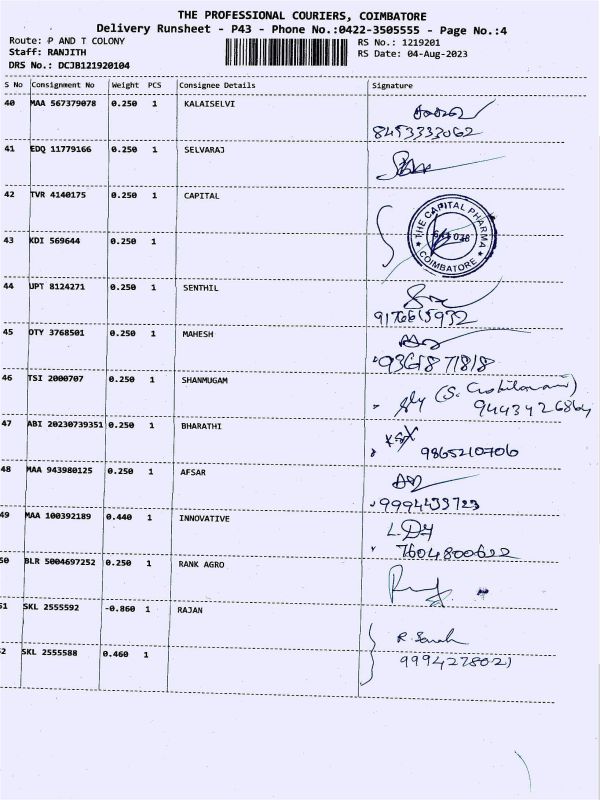 THE PROFESSIONAL COURIERS, COIMBATORE
Delivery Runsheet - P43 - Phone No.:0422-3505555 - Page No.:4
Route: P AND T COLONY
RS No.: 1219201
Staff: RANJITH
RS Date: 04-Aug-2023
DRS No.: DCJB121920104
S No Consignment No Weight PCS Consignee Details Signature
40 MAA 567379078 0.250 1 KALAISELVI
8453333062
41 EDQ 11779166 0.250 1 SELVARAJ
42 TVR 4140175 0.250 1 CAPITAL
THE CAPITAL PHARMA
COIMBATORE
43 KDI 569644 0.250 1
44 UPT 8124271 0.250 1 SENTHIL
9176615932
45 OTY 3768501 0.250 1 MAHESH
9361871818
46 TSI 2000707 0.250 1 SHANMUGAM
9443426864
47 ABI 20230739351 0.250 1 BHARATHI
9865210706
48 MAA 943980125 0.250 1 AFSAR
9994433723
49 MAA 100392189 0.440 1 INNOVATIVE
7604800622
50 BLR 5004697252 0.250 1 RANK AGRO
51 SKL 2555592 -0.860 1 RAJAN
9994278021
52 SKL 2555588 0.460 1